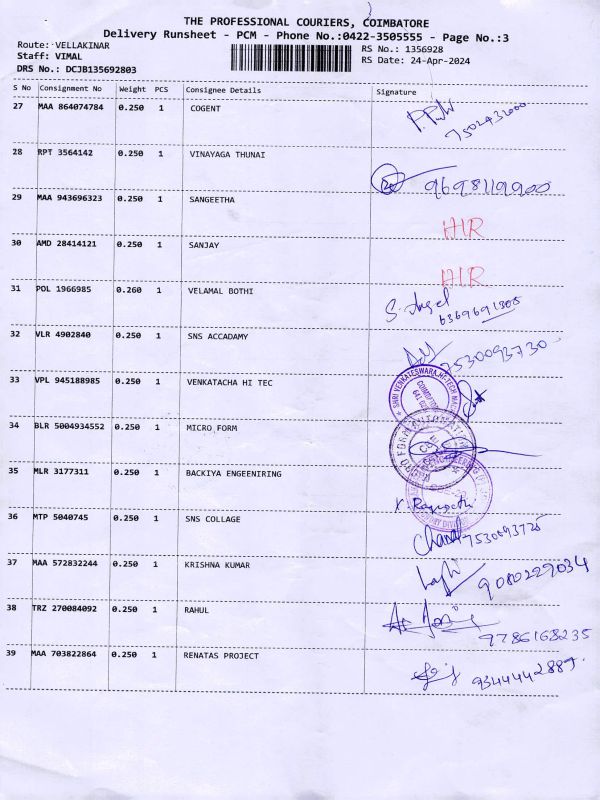 THE PROFESSIONAL COURIERS, COIMBATORE
Delivery Runsheet - PCM - Phone No.:0422-3505555 - Page No.:3
Route: VELLAKINAR
RS No.: 1356928
Staff: VIMAL
RS Date: 24-Apr-2024
DRS No.: DCJB135692803
S No Consignment No Weight PCS Consignee Details Signature
27 MAA 864074784 0.250 1 COGENT
7502432000
28 RPT 3564142 0.250 1 VINAYAGA THUNAI
9698119900
29 MAA 943696323 0.250 1 SANGEETHA
HIR
30 AMD 28414121 0.250 1 SANJAY
HIR
31 POL 1966985 0.260 1 VELAMAL BOTHI
S. Angel
32 VLR 4902840 0.250 1 SNS ACCADAMY
7530093730
33 VPL 945188985 0.250 1 VENKATACHA HI TEC
SHRI VENKATESWARA HI-TECH
34 BLR 5004934552 0.250 1 MICRO FORM
35 MLR 3177311 0.250 1 BACKIYA ENGEENIRING
36 MTP 5040745 0.250 1 SNS COLLAGE
7530093725
37 MAA 572832244 0.250 1 KRISHNA KUMAR
9080229034
38 TRZ 270084092 0.250 1 RAHUL
9786168235
39 MAA 703822864 0.250 1 RENATAS PROJECT
9344442887